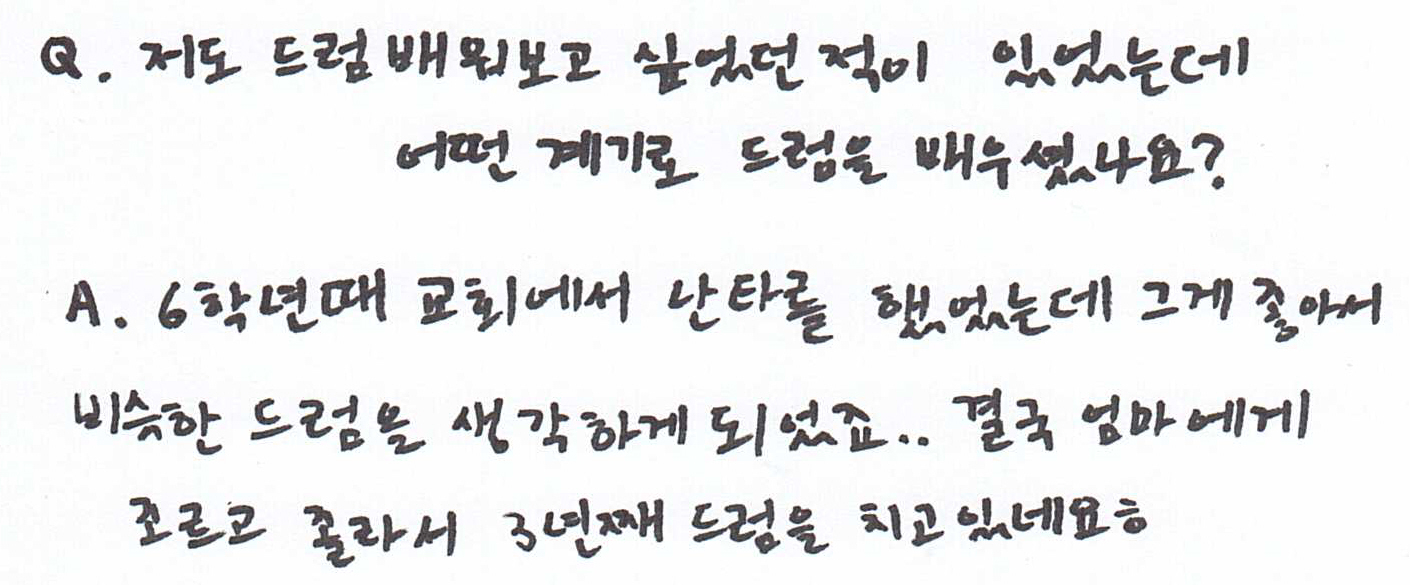 Q. 저도 드럼 배워보고 싶었던 적이 있었는데
어떤 계기로 드럼을 배우셨나요?
A. 6학년때 교회에서 난타를 했었는데 그게 좋아서
비슷한 드럼을 생각하게 되었죠.. 결국 엄마에게
조르고 졸라서 3년째 드럼을 치고있네요ㅎ